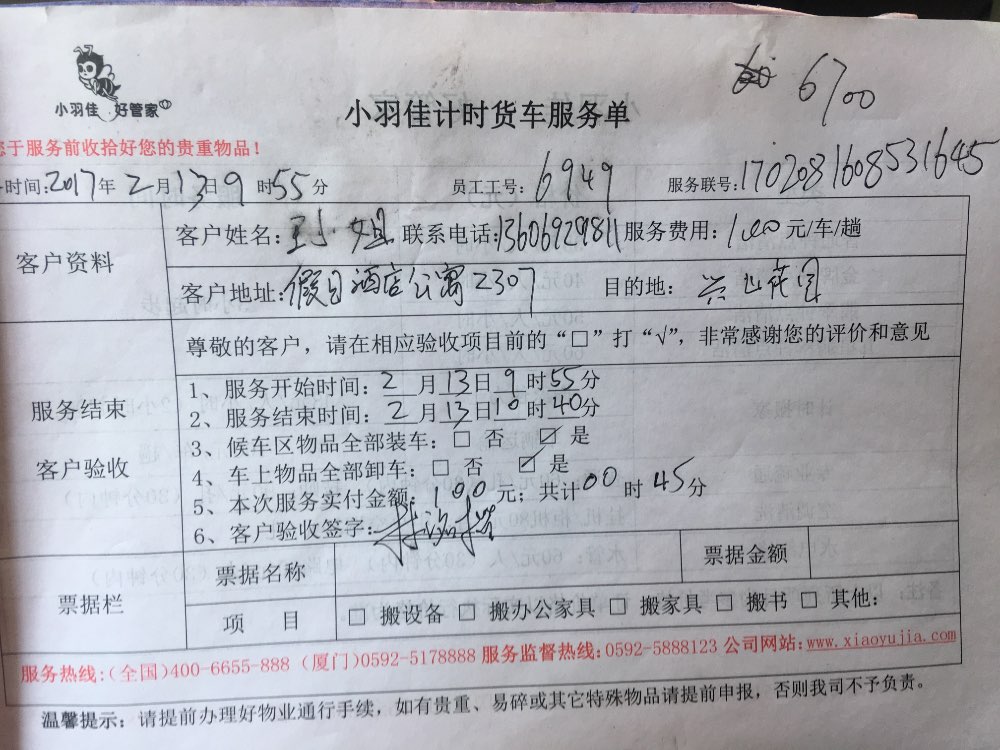 6700
小羽佳 好管家
小羽佳计时货车服务单
您于服务前收拾好您的贵重物品！
时间:2017年2月13日9时55分 员工工号:6949 服务联号:1702081608531645
客户资料
客户姓名:王小姐 联系电话:13606929811 服务费用:100元/车/趟
客户地址:假日酒店公寓2307 目的地: 兴山花园
尊敬的客户，请在相应验收项目前的“□”打“√”，非常感谢您的评价和意见
服务结束
客户验收
1、服务开始时间:2月13日9时55分
2、服务结束时间:2月13日10时40分
3、候车区物品全部装车:□ 否 ☑ 是
4、车上物品全部卸车:□ 否 ☑ 是
5、本次服务实付金额:100元；共计00时45分
6、客户验收签字:
票据栏
票据名称 票据金额
项 目 □ 搬设备 □ 搬办公家具 □ 搬家具 □ 搬书 □ 其他:
服务热线:(全国)400-6655-888 (厦门)0592-5178888 服务监督热线:0592-5888123 公司网站:www.xiaoyujia.com
温馨提示: 请提前办理好物业通行手续，如有贵重、易碎或其它特殊物品请提前申报，否则我司不予负责。